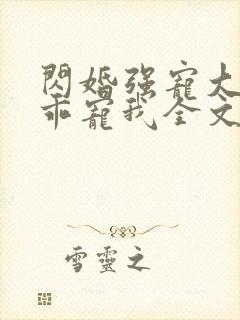 閃婚强寵大
乖寵我全文
雪靈之